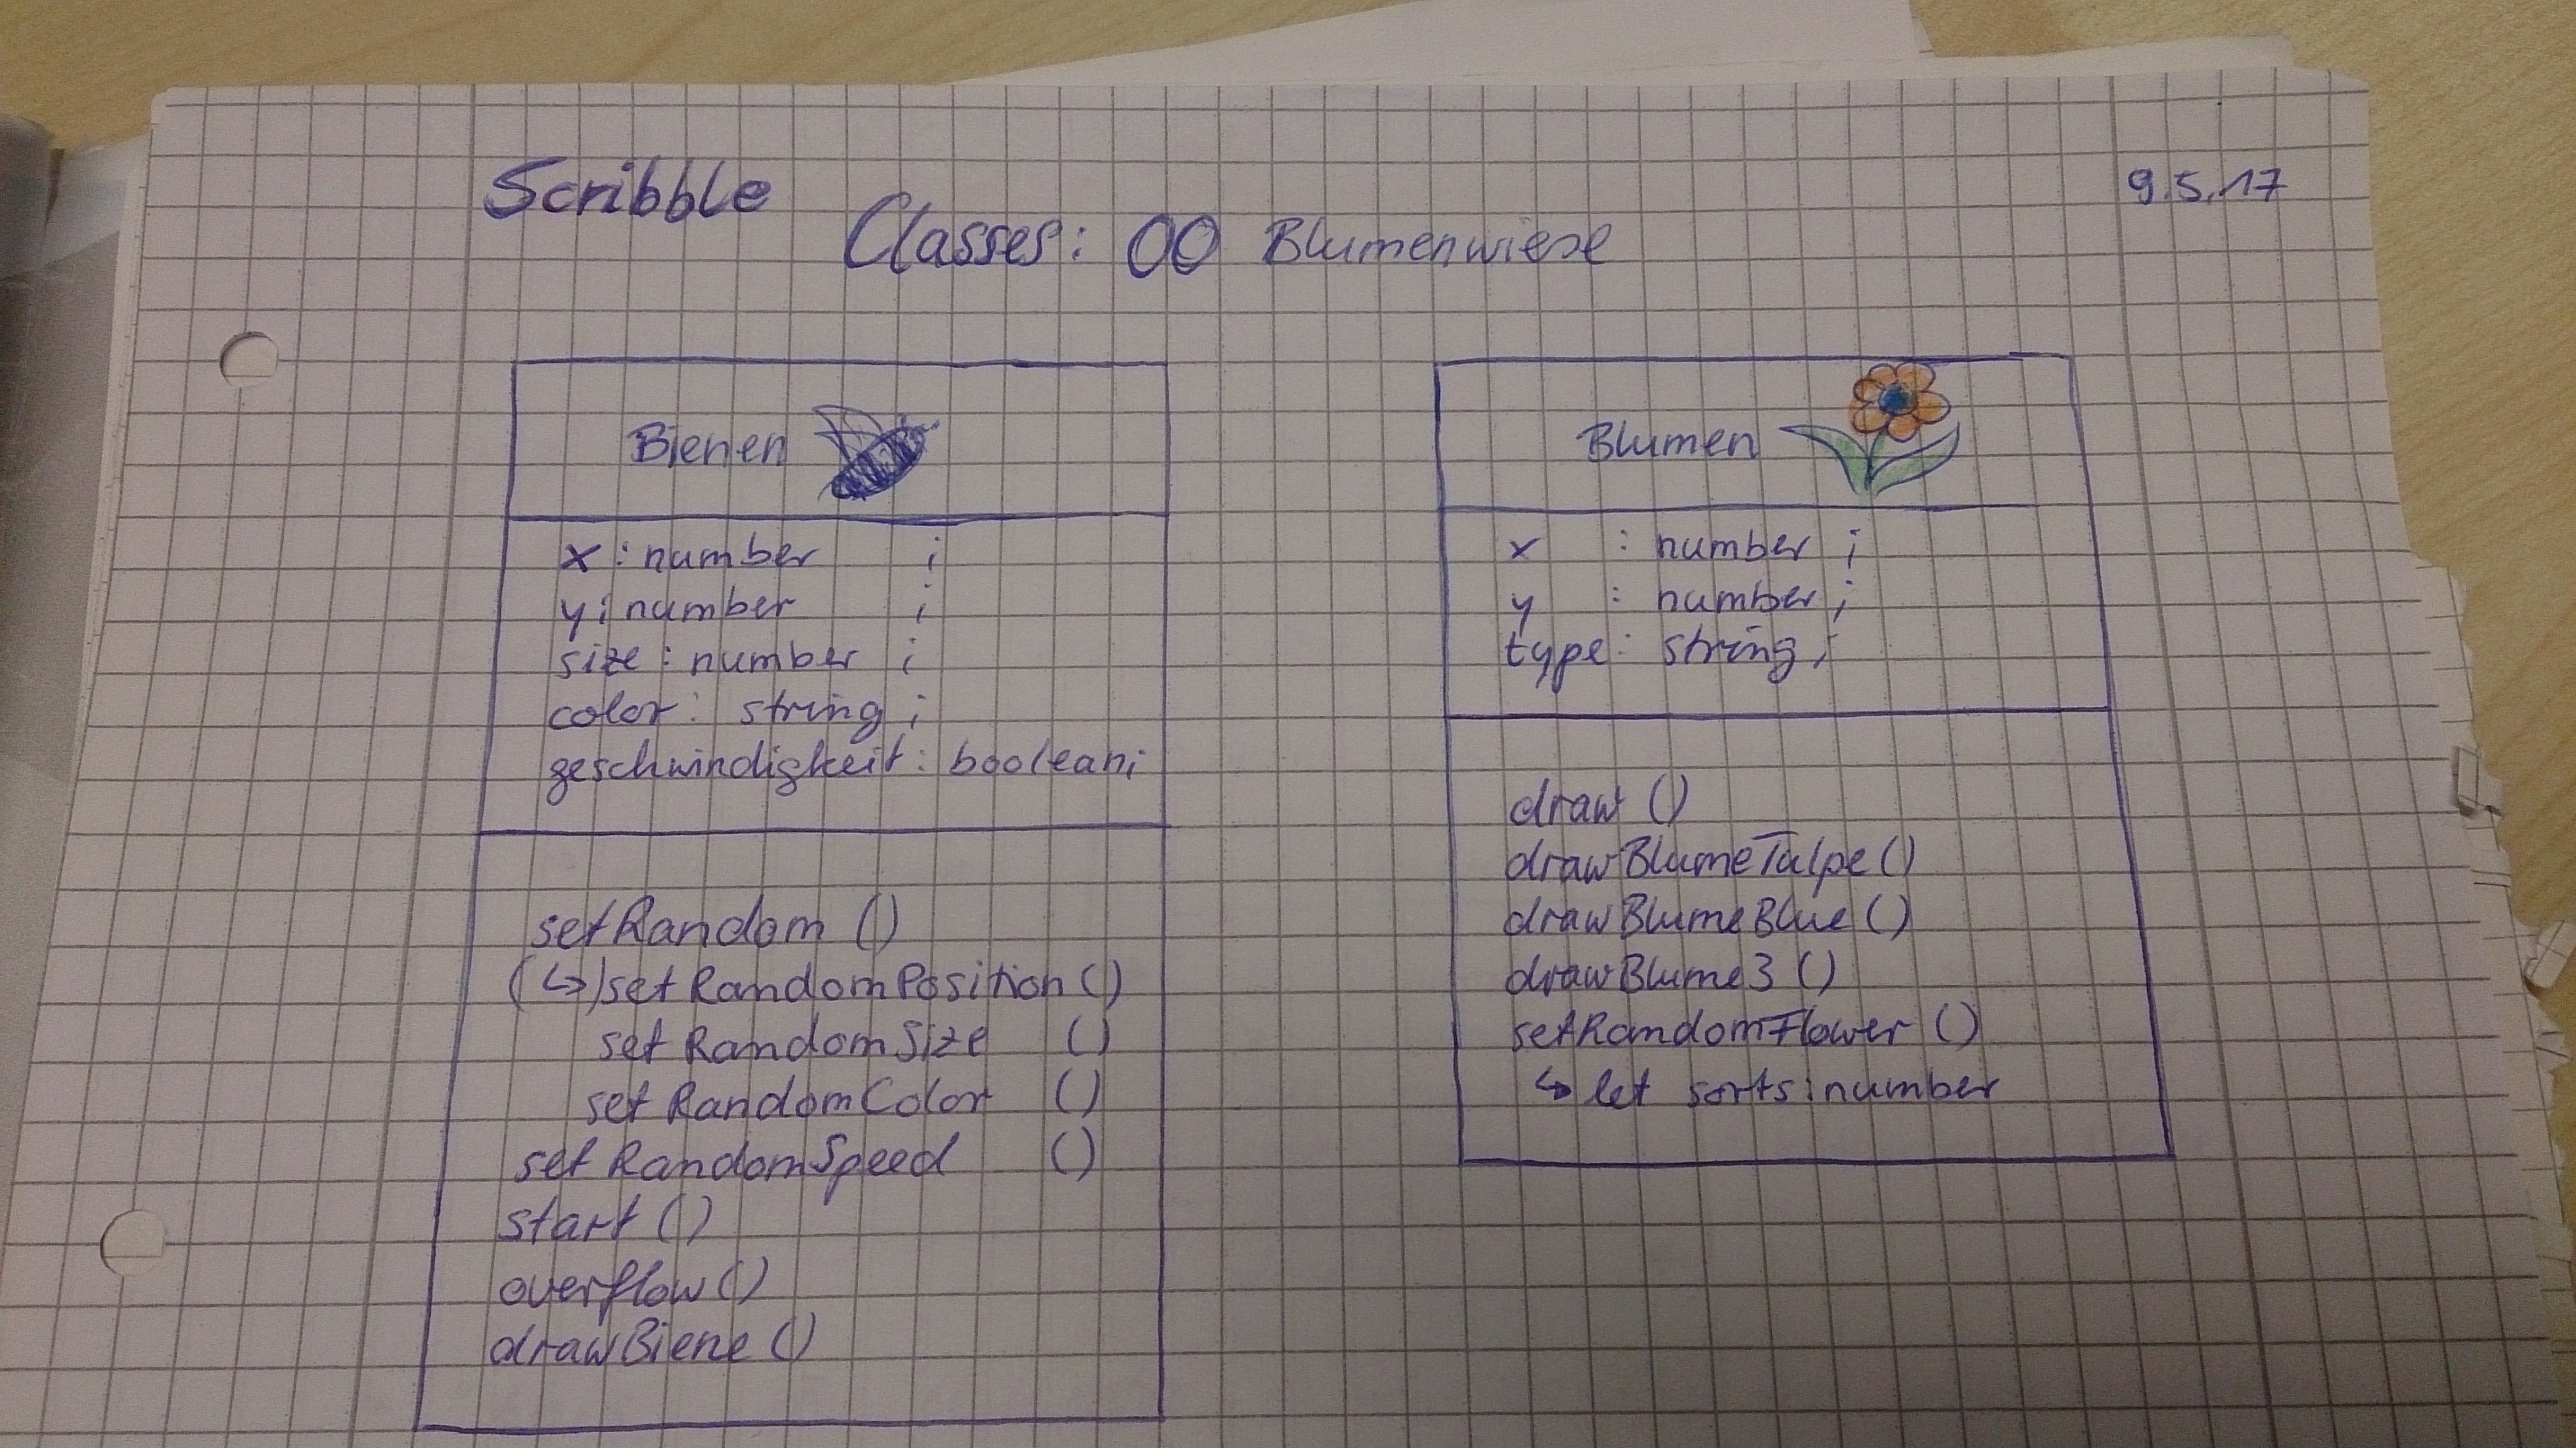 Scribble
9.5.17
Classes: OO Blumenwiese
Bienen
x : number ;
y : number ;
size : number ;
color : string ;
geschwindigkeit : boolean ;
setRandom ()
(↳) setRandomPosition ()
setRandomSize ()
setRandomColor ()
setRandomSpeed ()
start ()
overflow ()
drawBiene ()
Blumen
x : number ;
y : number ;
type : string ;
draw ()
drawBlumeTulpe ()
drawBlumeBlue ()
drawBlume3 ()
setRandomFlower ()
↳ let sorts : number